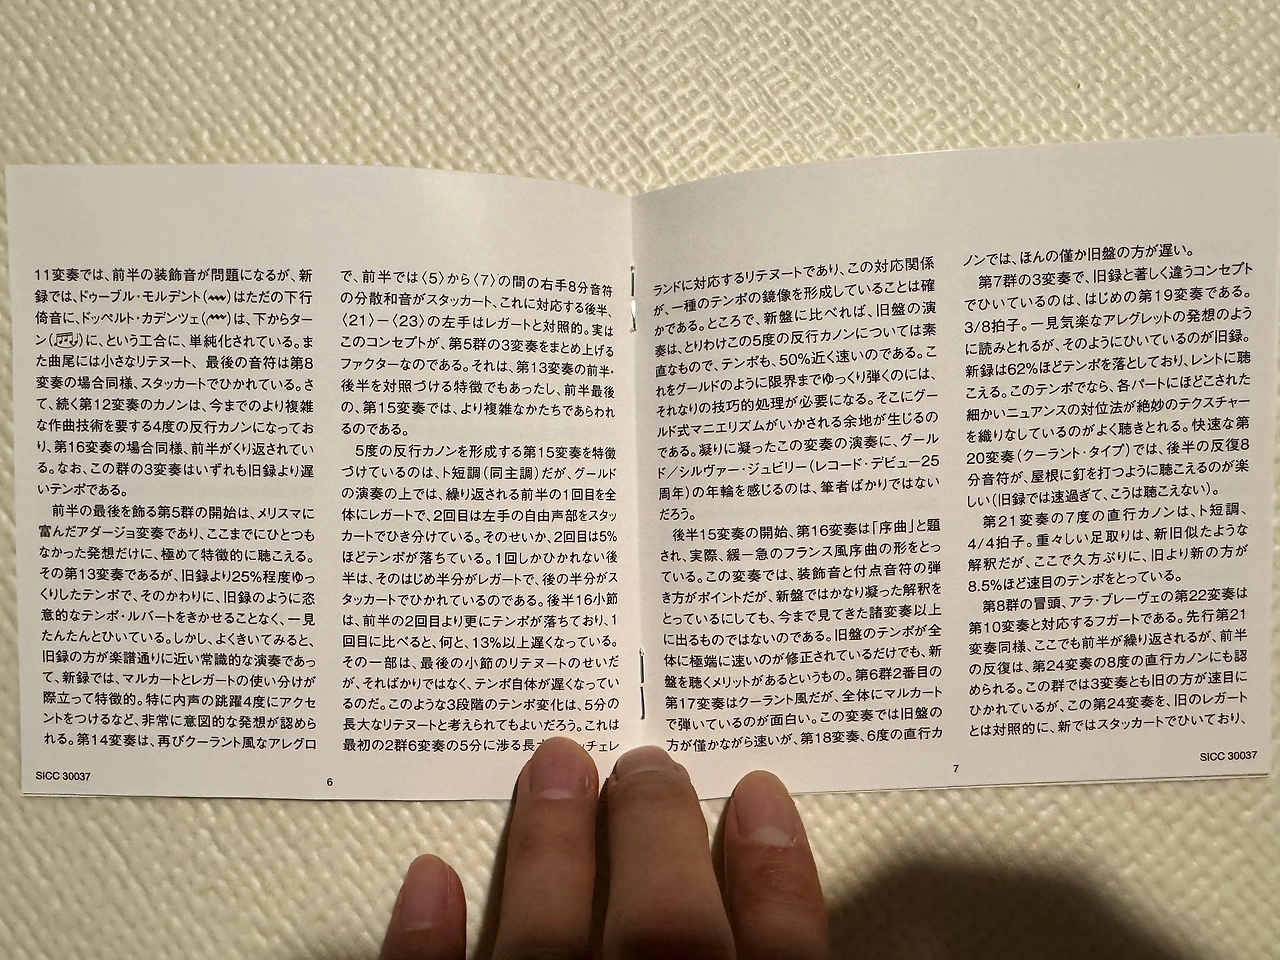 11変奏では、前半の装飾音が問題になるが、新
録では、ドゥーブル・モルデント()はただの下行
倚音に、ドッペルト・カデンツェ()は、下からター
ン()に、という工合に、単純化されている。ま
た曲尾には小さなリテヌート、最後の音符は第8
変奏の場合同様、スタッカートでひかれている。さ
て、続く第12変奏のカノンは、今までのより複雑
な作曲技術を要する4度の反行カノンになってお
り、第16変奏の場合同様、前半がくり返されてい
る。なお、この群の3変奏はいずれも旧録より遅
いテンポである。
前半の最後を飾る第5群の開始は、メリスマに
富んだアダージョ変奏であり、ここまでにひとつも
なかった発想だけに、極めて特徴的に聴こえる。
その第13変奏であるが、旧録より25%程度ゆっ
くりしたテンポで、そのかわりに、旧録のように恣
意的なテンポ・ルバートをきかせることなく、一見
たんたんとひいている。しかし、よくきいてみると、
旧録の方が楽譜通りに近い常識的な演奏であっ
て、新録では、マルカートとレガートの使い分けが
際立って特徴的。特に内声の跳躍4度にアクセ
ントをつけるなど、非常に意図的な発想が認めら
れる。第14変奏は、再びクーラント風なアレグロ
で、前半では〈5〉から〈7〉の間の右手8分音符
の分散和音がスタッカート、これに対応する後半、
〈21〉―〈23〉の左手はレガートと対照的。実は
このコンセプトが、第5群の3変奏をまとめ上げる
ファクターなのである。それは、第13変奏の前半・
後半を対照づける特徴でもあったし、前半最後
の、第15変奏では、より複雑なかたちであらわれ
るのである。
5度の反行カノンを形成する第15変奏を特徴
づけているのは、ト短調(同主調)だが、グールド
の演奏の上では、繰り返される前半の1回目を全
体にレガートで、2回目は左手の自由声部をスタッ
カートでひき分けている。そのせいか、2回目は5%
ほどテンポが落ちている。1回しかひかれない後
半は、そのはじめ半分がレガートで、後の半分がス
タッカートでひかれているのである。後半16小節
は、前半の2回目より更にテンポが落ちており、1
回目に比べると、何と、13%以上遅くなっている。
その一部は、最後の小節のリテヌートのせいだ
が、そればかりではなく、テンポ自体が遅くなってい
るのだ。このような3段階のテンポ変化は、5分の
長大なリテヌートと考えられてもよいだろう。これは
最初の2群6変奏の5分に渉る長大
ッチェレ
SICC 30037
6
ランドに対応するリテヌートであり、この対応関係
が、一種のテンポの鏡像を形成していることは確
かである。ところで、新盤に比べれば、旧盤の演
奏は、とりわけこの5度の反行カノンについては素
直なもので、テンポも、50%近く速いのである。こ
れをグールドのように限界までゆっくり弾くのには、
それなりの技巧的処理が必要になる。そこにグー
ルド式マニエリズムがいかされる余地が生じるの
である。凝りに凝ったこの変奏の演奏に、グール
ド/シルヴァー・ジュビリー(レコード・デビュー25
周年)の年輪を感じるのは、筆者ばかりではない
だろう。
後半15変奏の開始、第16変奏は「序曲」と題
され、実際、緩―急のフランス風序曲の形をとっ
ている。この変奏では、装飾音と付点音符の弾
き方がポイントだが、新盤ではかなり凝った解釈を
とっているにしても、今まで見てきた諸変奏以上
に出るものではないのである。旧盤のテンポが全
体に極端に速いのが修正されているだけでも、新
盤を聴くメリットがあるというもの。第6群2番目の
第17変奏はクーラント風だが、全体にマルカート
で弾いているのが面白い。この変奏では旧盤の
方が僅かながら速いが、第18変奏、6度の直行カ
ノンでは、ほんの僅か旧盤の方が遅い。
第7群の3変奏で、旧録と著しく違うコンセプト
でひいているのは、はじめの第19変奏である。
3/8拍子。一見気楽なアレグレットの発想のよう
に読みとれるが、そのようにひいているのが旧録。
新録は62%ほどテンポを落としており、レントに聴
こえる。このテンポでなら、各パートにほどこされた
細かいニュアンスの対位法が絶妙のテクスチャー
を織りなしているのがよく聴きとれる。快速な第
20変奏(クーラント・タイプ)では、後半の反復8
分音符が、屋根に釘を打つように聴こえるのが楽
しい(旧録では速過ぎて、こうは聴こえない)。
第21変奏の7度の直行カノンは、ト短調、
4/4拍子。重々しい足取りは、新旧似たような
解釈だが、ここで久方ぶりに、旧より新の方が
8.5%ほど速目のテンポをとっている。
第8群の冒頭、アラ・ブレーヴェの第22変奏は
第10変奏と対応するフガートである。先行第21
変奏同様、ここでも前半が繰り返されるが、前半
の反復は、第24変奏の8度の直行カノンにも認
められる。この群では3変奏とも旧の方が速目に
ひかれているが、この第24変奏を、旧のレガート
とは対照的に、新ではスタッカートでひいており、
7
SICC 30037